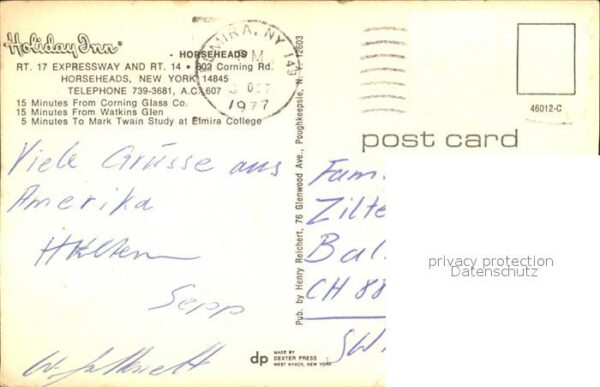 Holiday Inn®
- HORSEHEADS
RT. 17 EXPRESSWAY AND RT. 14 • 602 Corning Rd.
HORSEHEADS, NEW YORK 14845
TELEPHONE 739-3681, A.C. 607
15 Minutes From Corning Glass Co.
15 Minutes From Watkins Glen
5 Minutes To Mark Twain Study at Elmira College
ELMIRA, NY 149
PM
OCT
1977
Pub. by Henry Reichert, 76 Glenwood Ave., Poughkeepsie, N. Y. 12603
46012-C
post card
Viele Grüsse aus
Amerika
Sepp
Fam.
Zilte
Bal
CH 88
SW
privacy protection
Datenschutz
dp
MADE BY
DEXTER PRESS
WEST NYACK, NEW YORK